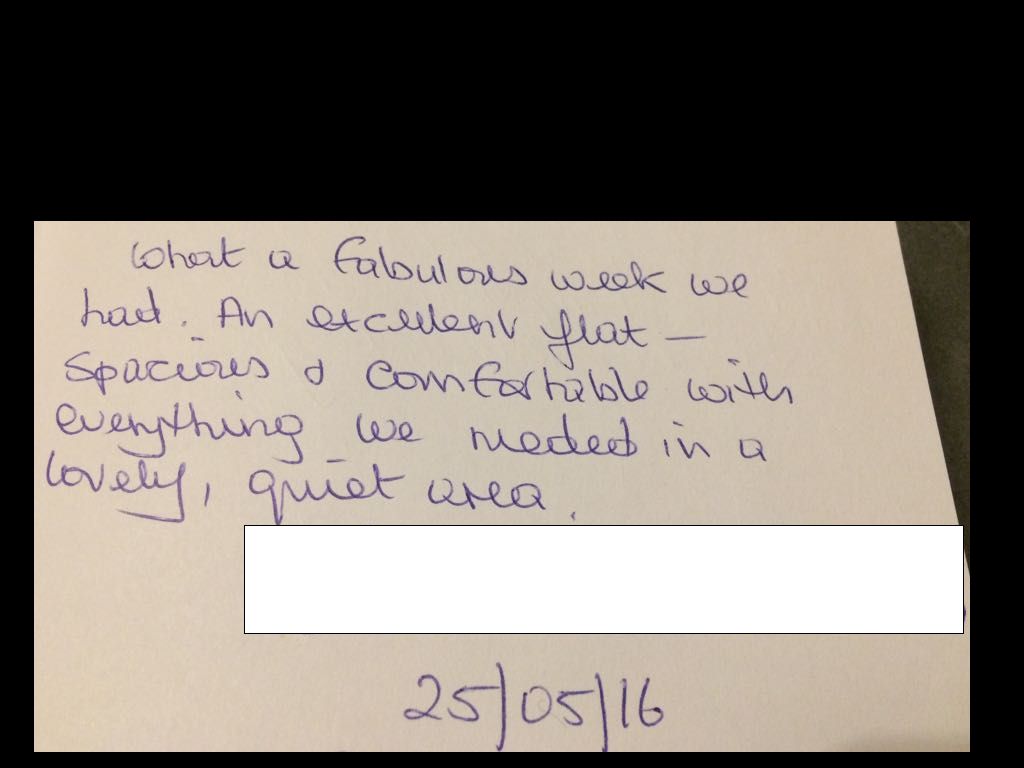 What a fabulous week we
had. An excellent flat —
spacious & comfortable with
everything we needed in a
lovely, quiet area.
25/05/16